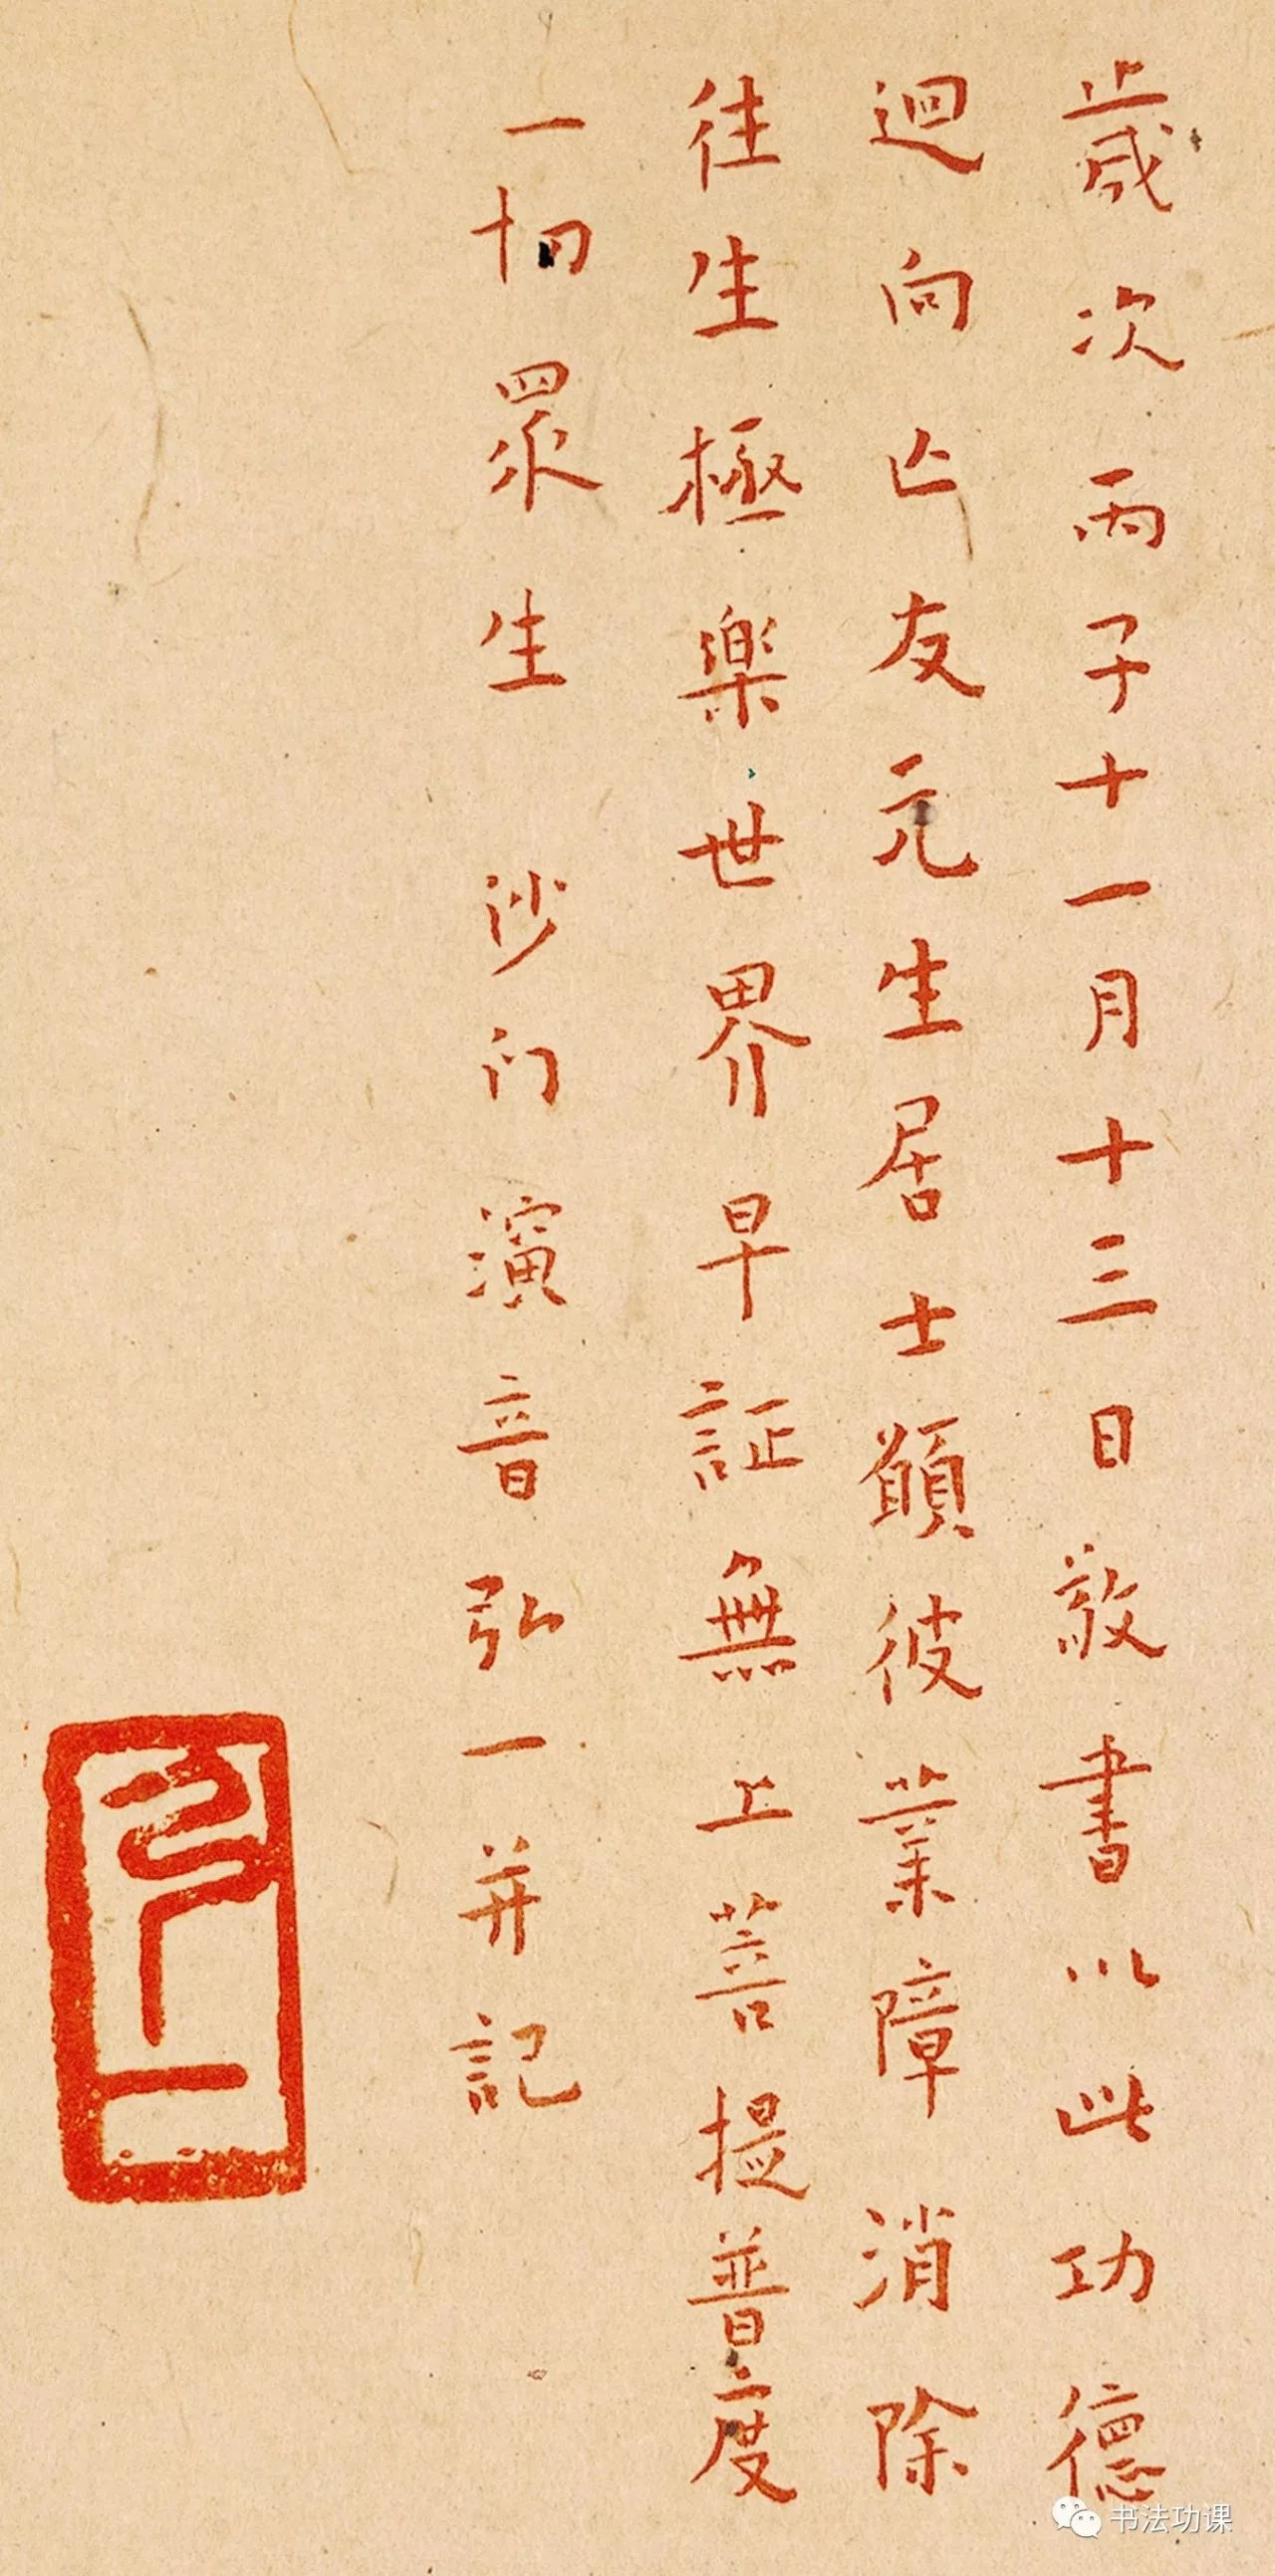 歲次丙子十一月十三日敬書以此功德
迴向亡友元生居士願彼業障消除
往生極樂世界早証無上菩提普度
一切眾生 沙门演音弘一并記
弘一
书法功课